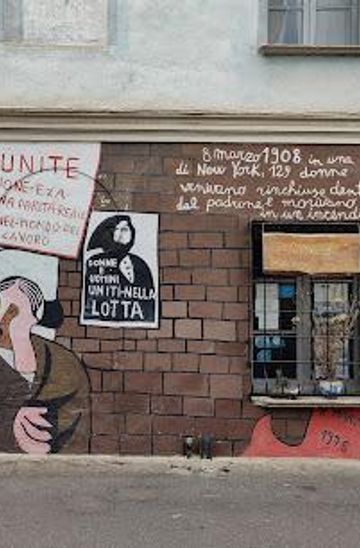 UNITE
IONE-EXA
NA PARITA REALE
NEL-MONDO DEL
LAVORO
DONNE
E
UOMINI
UNITI-NELLA
LOTTA
8 marzo 1908 in una
di New York, 129 donne
venivano rinchiuse den
dal padrone e morivano
in un incend
1978